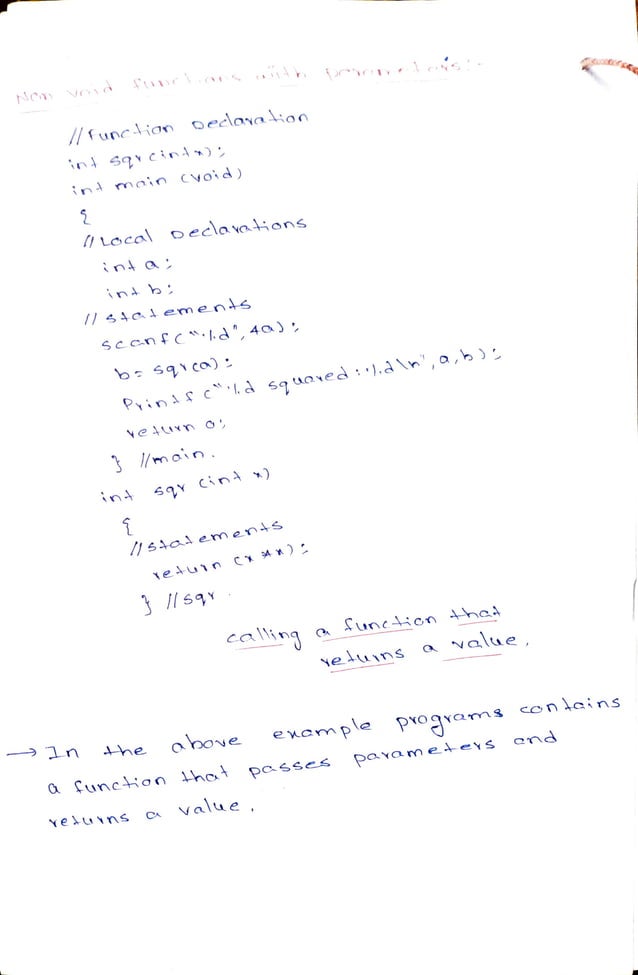 Non void functions with parameters:-
// Function Declaration
int sqr (int x);
int main (void)
{
// Local Declarations
int a;
int b;
// statements
scanf ("%d", &a);
b = sqr(a);
Printf ("%d squared: %d\n", a, b);
return 0;
} //main.
int sqr (int x)
{
// statements
return (x * x);
} //sqr.
calling a function that
returns a value.
→ In the above example programs contains
a function that passes parameters and
returns a value.